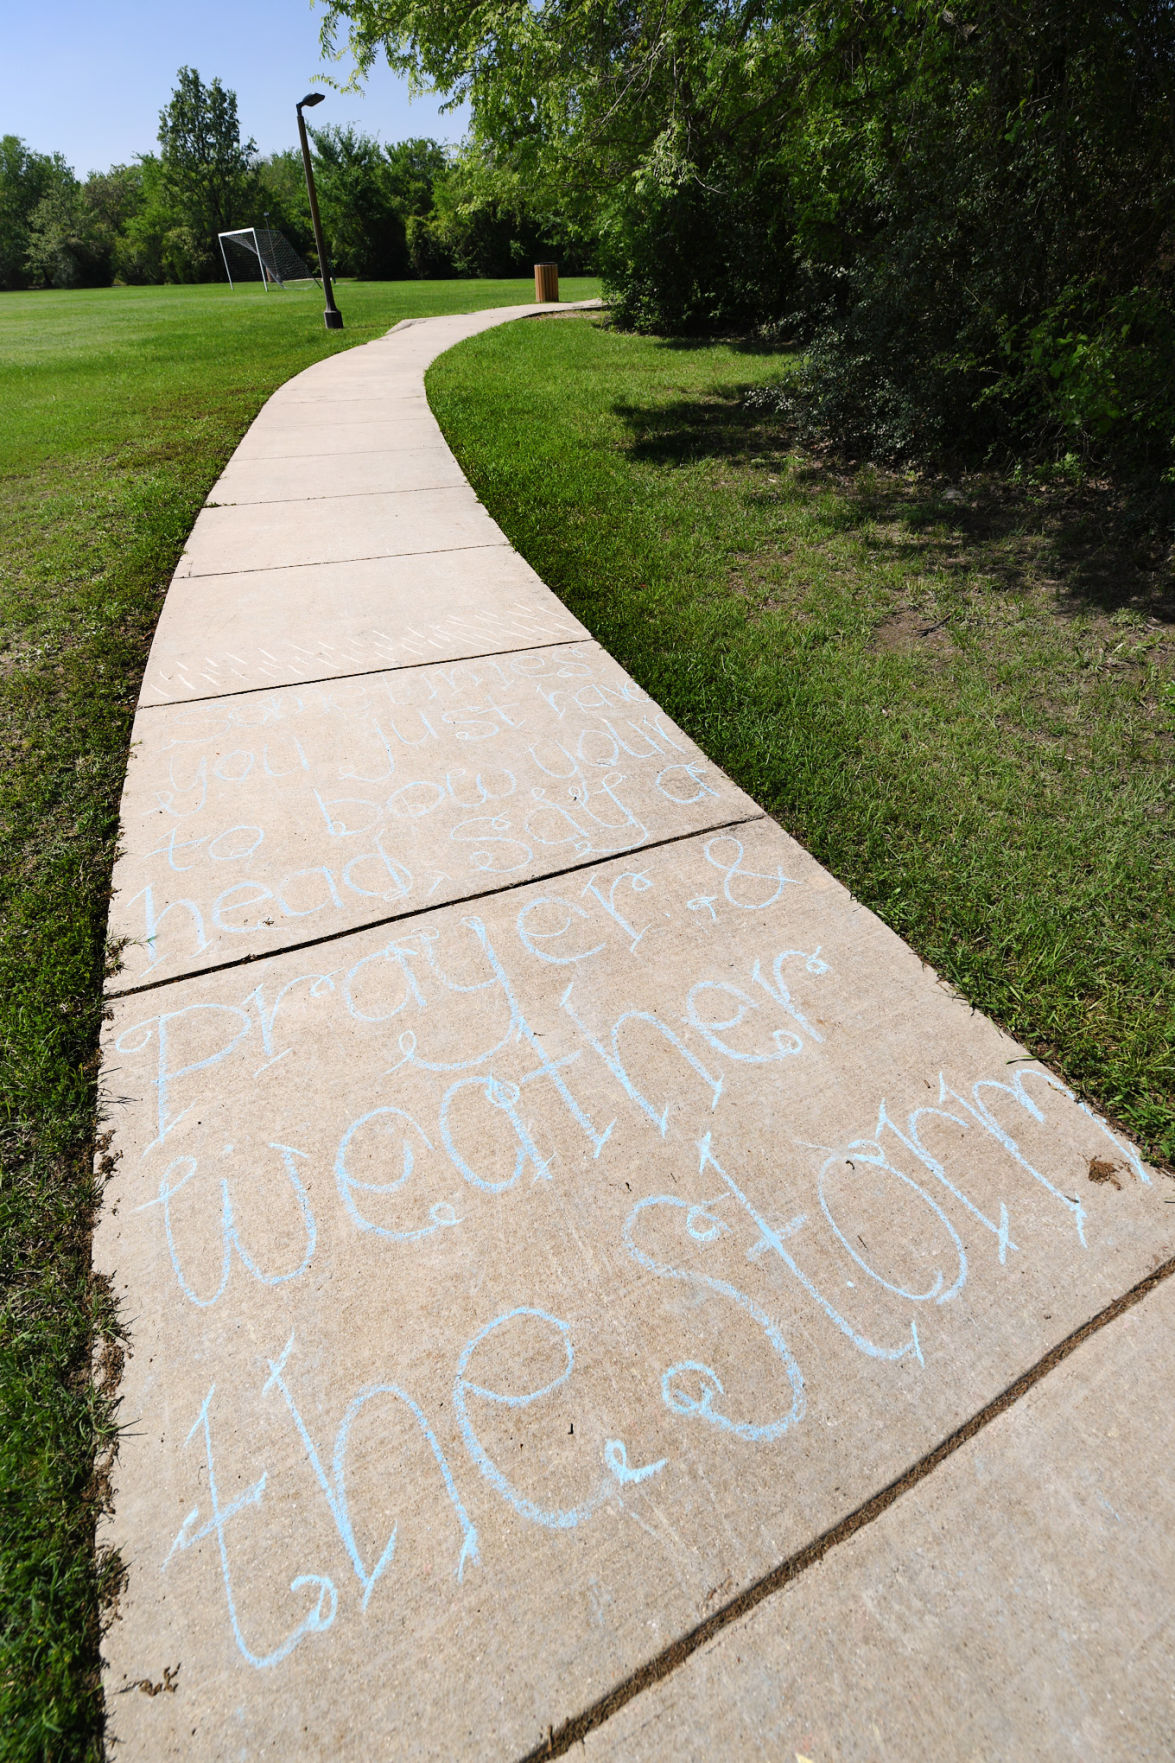 Sometimes
you just have
to bow your
head, say a
prayer, &
weather
the storm